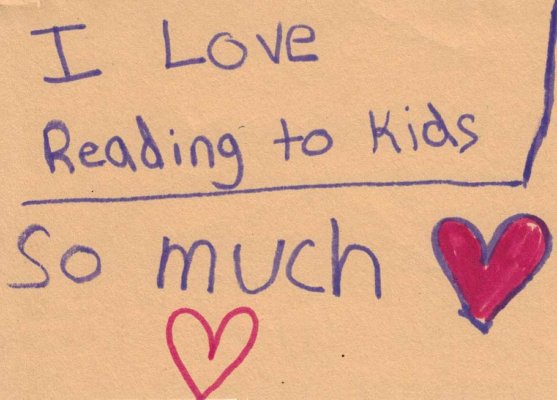 I Love
Reading to Kids
So much